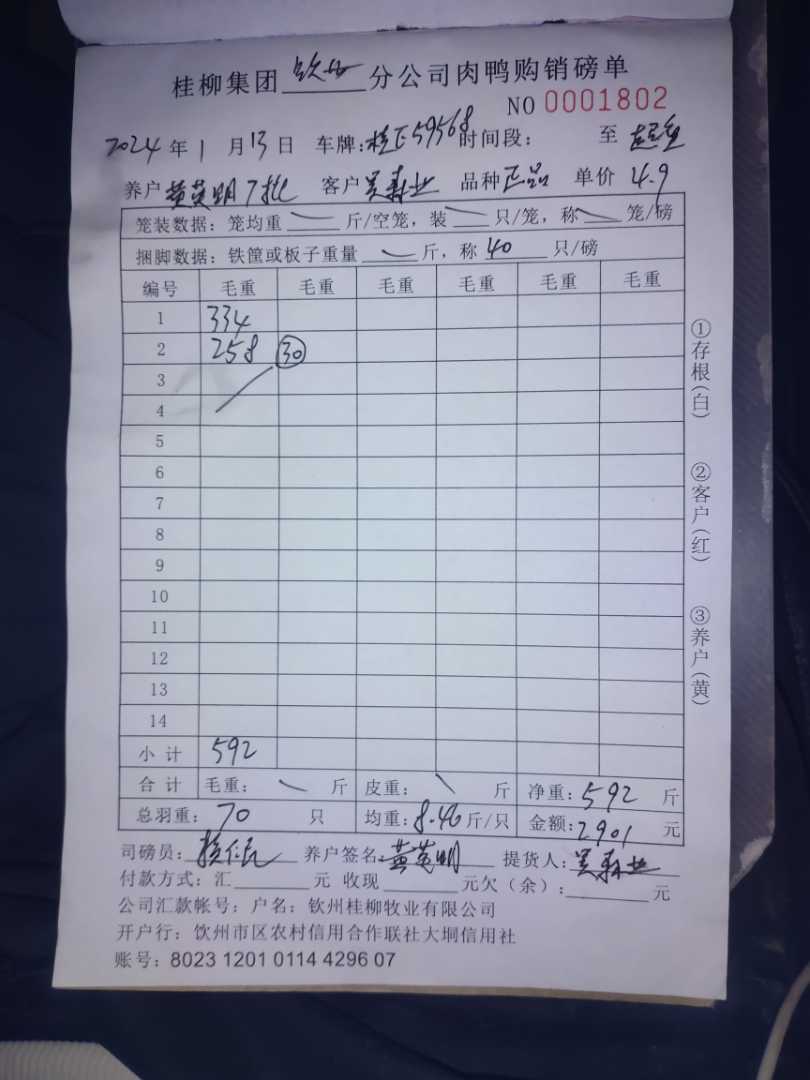 桂柳集团 钦州 分公司肉鸭购销磅单
NO 0001802
2024 年 1 月 13 日 车牌:桂E59568 时间段: 至
养户 黄英明7批 客户 吴森业 品种 正品 单价 4.9
笼装数据:笼均重 斤/空笼,装 只/笼,称 笼/磅
捆脚数据:铁筐或板子重量 斤,称 40 只/磅
编号 毛重 毛重 毛重 毛重 毛重 毛重
1 334
2 258 30
3
4
5
6
7
8
9
10
11
12
13
14
小计 592
合计 毛重: 斤 皮重: 斤 净重:592 斤
总羽重:70 只 均重:8.46 斤/只 金额:2901 元
司磅员: 养户签名 黄英明 提货人:吴森业
付款方式:汇 元 收现 元欠(余): 元
公司汇款帐号:户名:钦州桂柳牧业有限公司
开户行:饮州市区农村信用合作联社大垌信用社
账号:8023 1201 0114 4296 07
①存根(白)
②客户(红)
③养户(黄)